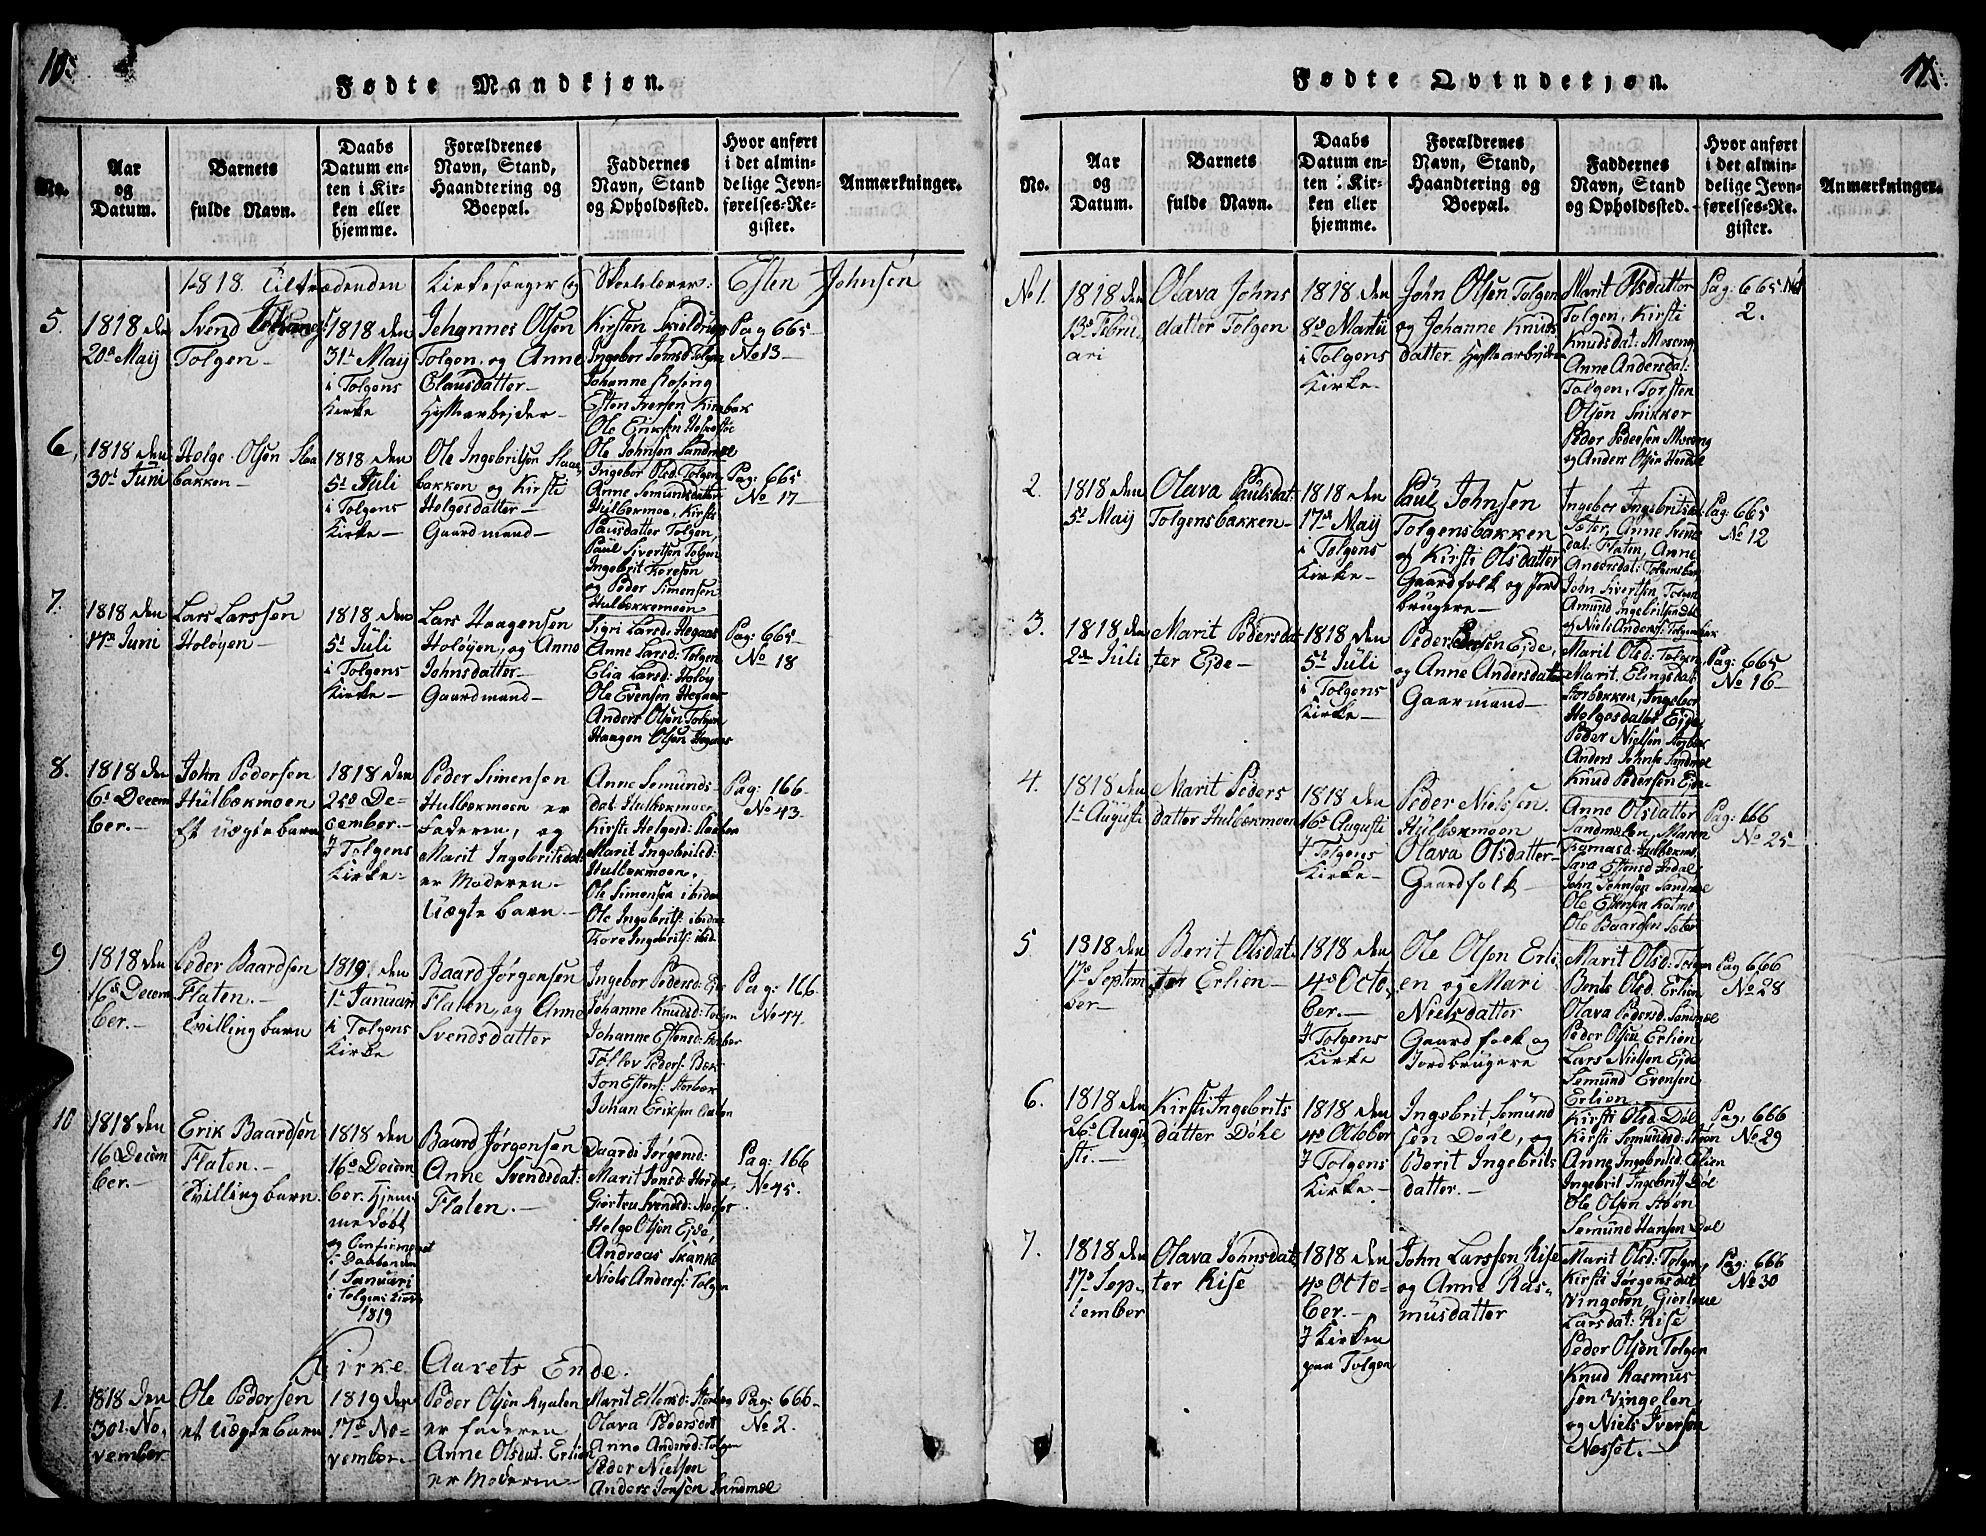 10.
Fødte Mandkjøn.
No.
Aar
og
Datum.
Barnets
fulde Navn.
Daabs
Datum en-
ten i Kir-
ken eller
hjemme.
Forældrenes
Navn, Stand,
Haandtering og
Boepæl.
Faddernes
Navn, Stand
og Opholdssted.
Hvor anført
i det almin-
delige Jevn-
førelses-Re-
gister.
Anmærkninger.
1818. Tiltrædenden Kirkesanger og Skoelelærer: Esten Johnsen
5.
1818 den
20de Maij
Svend Johannes
Tolgen
1818 den
31te Maij
i Tolgens
Kirke
Johannes Olsen
Tolgen, og Anne
Clausdatter
Hyttearbejder
Ingebor Jonsd: Tolgen
Johanne Rosing
Esten Iversen
Ole Eriksen
Ole Johnsen Sandmæl
Pag 665
No 13
6.
1818 den
30te Juni
Helge Olsen Slaa
bakken
1818 den
5te Juli
i Tolgens
Kirke
Ole Ingebritsen Slaa
bakken og Kirsti
Helgesdatter
Gaardmand
Ingebor Olsd: Tolgen
Anne Semundsdatter
Hulbækmoe, Kirsti
Paulsdatter Tolgen,
Paul Sivertsen Tolgen
Ingebrit Toresen
og Peder Simensen
Hulbækkemoen
Pag: 665
No 17
7.
1818 den
17de Juni
Lars Larssen
Holøyen
1818 den
5te Juli
i Tolgens
Kirke
Lars Haagensen
Holøyen, og Anne
Johnsdatter
Gaardmand
Sigri Larsd: Hegaas
Anne Larsd: Tolgen
Elia Larsd: Holøy
Ole Evensen Hegaas
Anders Olsen Tolgen
Haagen Olsen Hegaas
Pag: 665
No 18
8.
1818 den
6te Decem
ber.
John Pedersen
Hulbækmoen
Et uægte barn
1818 den
25de De-
cember.
I Tolgens
Kirke
Peder Simensen
Hulbækmoen er
Faderen, og
Marit Ingebritsdat:
er Moderen
Uægte barn.
Anne Semunds
dat. Hulbækmoen
Kirsti Helgesd:
Marit Ingebritsd:
Hulbækmoen,
Ole Simensen ibidem
Ole Ingebrits: ibidem
Tore Ingebrits: ibid
Pag: 166
No 43
9
1818 den
16de Decem
ber.
Peder Baardsen
Flaten.
Tvilling barn
1819 den
1te Januari
i Tolgens
Kirke
Baard Jørgensen
Flaten, og Anne
Svendsdatter
Ingebor Pedersd:
Johanne Knudsd: Tolgen
Johanne Estensd:
Tollev Peders:
Jon Estens: Storbæk
Johan Eriksen
Pag: 166
No 44
10
1818 den
16 Decem
ber.
Erik Baardsen
Flaten.
Tvilling barn
1818 den
16de Decem
ber. Hjem-
me døbt
og Confirmeret
i Daaben den
1 Januari
i Tolgens Kirke
1819
Baard Jørgensen
Anne Svendsdat:
Flaten.
Jørgensd:
Marit Jonsd:
Giertru Svendsd:
Helge Olsen Ejde,
Andreas Skanke
Niels Anders: Tolgen
Pag: 166
No 45
Kirke Aarets Ende.
1.
1818 den
30te No-
vember
Ole Pedersen
et uægte barn
1819 den
17de No-
vember.
Peder Olsen
er faderen
Anne Olsdat. Erlien
er Moderen
Marit
Olava Pedersdat
Anne Andersd: Tolgen
Peder Nielsen
Anders Jonsen Sandmæl
Pag: 666
No 2.
Fødte Qvindekjøn.
No.
Aar
og
Datum.
Barnets
fulde Navn.
Daabs
Datum en-
ten i Kir-
ken eller
hjemme.
Forældrenes
Navn, Stand,
Haandtering og
Boepæl.
Faddernes
Navn, Stand
og Opholdssted.
Hvor anført
i det almin-
delige Jevn-
førelses-Re-
gister.
Anmærkninger.
No 1.
1818 den
13de Febru
ari
Olava Johns
datter Tolgen
1818 den
8de Martii
i Tolgens
Kirke
John Olsen Tolgen
og Johanne Knuds
datter Hyttearbejder
Marit Olsdatter
Tolgen, Kirsti
Knudsdat: Moseng
Anne Andersdat:
Tolgen, Torsten
Olsen Snikker
Peder Pedersen Moseng
og Anders Olsen
Pag: 665 No
2.
2.
1818 den
5te Maij
Olava Paulsdat:
Tolgensbakken
1818 den
17de Maij
i Tolgens
Kirke
Paul Johnsen
Tolgensbakken
og Kirsti Olsdatter
Gaardfolk og Jord
brugere
Ingebor Ingebritsdat:
Anne Svens
dat: Flaten, Anne
Andersdat: Tolgensbak
John Sivertsen, Tolgen
Amund Ingebritsen
og Niels Anders: Tolgensbak
Pag: 665
No 12
3.
1818 den
2den Juli
Marit Pedersdat
ter Ejde
1818 den
5te Juli
i Tolgens
Kirke
Peder Ejde,
og Anne Andersdatter
Gaarmand
Marit Olsd: Tolgen,
Marit Elingsdat:
Storbekken, Ingebor
Helgesdatter Ejde,
Peder Nielsen Storbæk
Anders Johnse Sandmæl
Knud Pedersen Ejde
Pag: 665
No 16
4.
1818 den
1te Augusti
Marit Peders
datter Hulbækmoen
1818 den
16de Augusti
i Tolgens
Kirke
Peder Nielssen
Hulbækmoen
Olava Olsdatter
Gaardfolk
Anne Olsdatter
Sandmælen, Maren
Tomasd: Hulbækmo
John Johnsen Sandmæl
Ole Estensen
Ole Baardsen
Pag: 666
No 25
5
1818 den
17de Septem
ber
Berit Olsdat:
ter Erlien
1818 den
4de Octo-
ber.
I Tolgens
Kirke
Ole Olsen Erli-
en og Mari
Nielsdatter
Gaardfolk og
Jordbrugere
Marit Olsd: Tolgen
Berit Olsd. Erlien
Olava Pedersd: Sandmæl
Peder Olsen Erlien
Lars Nielsen Ejde
Semund Evensen
Erlien
Pag 666
No 28
6.
1818 den
26de Augu
sti.
Kirsti Ingebrits
datter Døhl
1818 den
4de October
I Tolgens
Kirke
Ingebrit Semund
sen Døhl, og
Berit Ingebrits
datter.
Kirsti Olsd. Døl
Kirsti Semundsd:
Anne Ingebritsd: Erlien
Ingebrit Ingebrits: Døl
Ole Olsen
Semund Hansen Døl
Pag: 666
No 29
7.
1818 den
17de Sep-
tember
Olava Johnsdat
ter Rise
1818 den
4de Octo-
ber.
I Kirken
paa Tolgen
John Larssen Rise
og Anne Ras-
musdatter
Marit Olsd: Tolgen,
Kirsti Jørgensdat
Vingelen,
Larsdat: Rise
Peder Olsen Tolgen
Knud Rasmus
sen Vingelen
og Niels Iversen
Nesset.
Pag: 666
No 30